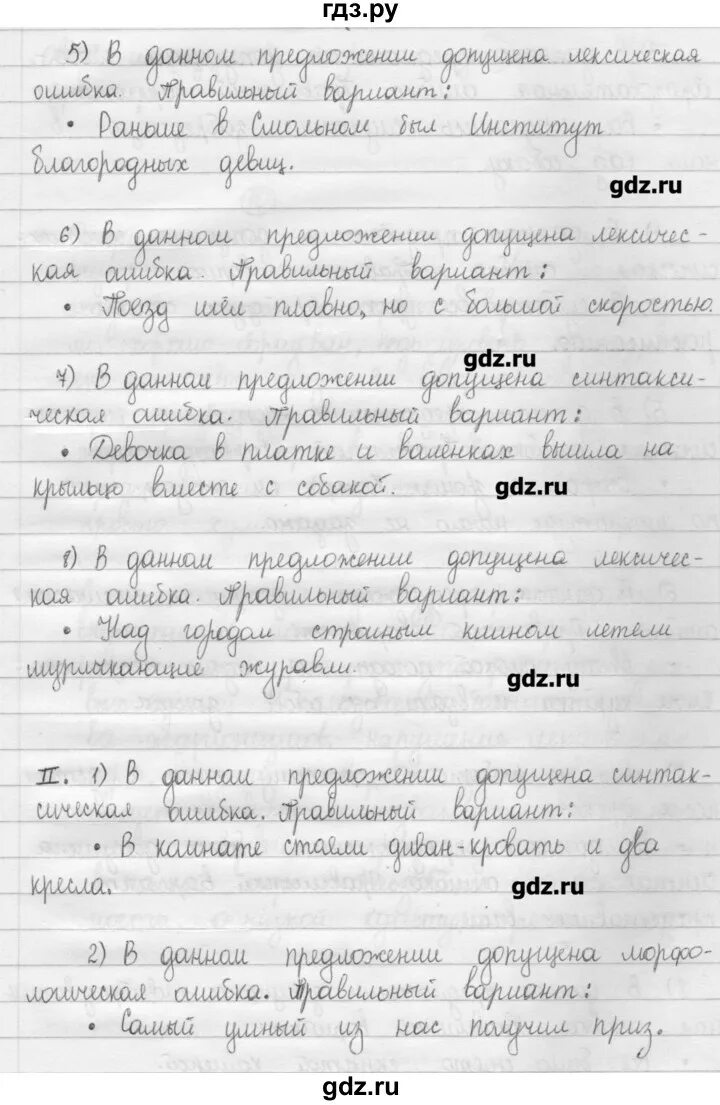 гдз.ру
5) В данном предложении допущена лексическая
ошибка. Правильный вариант:
• Раньше в Смольном был Институт
благородных девиц.
gdz.ru
6) В данном предложении допущена лексичес-
кая ошибка. Правильный вариант:
• Поезд шёл плавно, но с большой скоростью.
gdz.ru
7) В данном предложении допущена синтакси-
ческая ошибка. Правильный вариант:
• Девочка в платке и валенках вышла на
крыльцо вместе с собакой.
gdz.ru
8) В данном предложении допущена лексичес-
кая ошибка. Правильный вариант:
• Над городом странным клином летели
мурлыкающие журавли.
gdz.ru
II. 1) В данном предложении допущена синтак-
сическая ошибка. Правильный вариант:
• В комнате стояли диван-кровать и два
кресла.
gdz.ru
2) В данном предложении допущена морфо-
логическая ошибка. Правильный вариант:
• Самый умный из нас получил приз.
gdz.ru